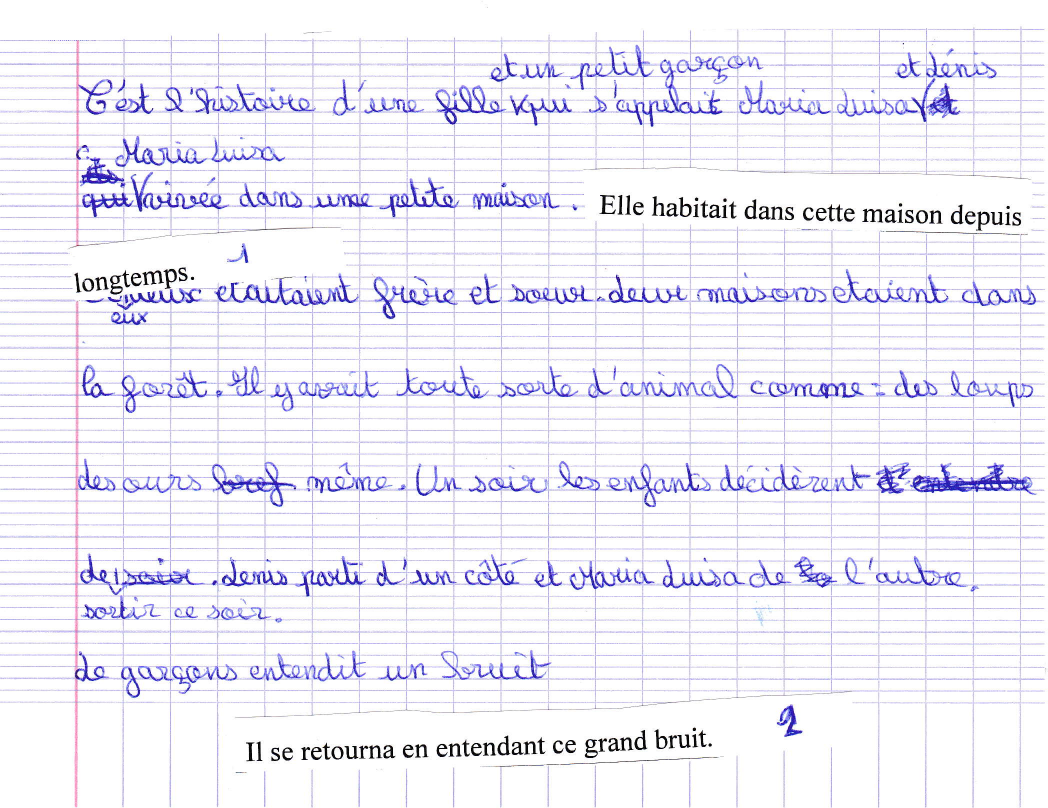 et un petit garçon et dénis
C'est l'histoire d'une fille qui s'appelait Maria Luisa
Maria Luisa
qui vivée dans une petite maison. Elle habitait dans cette maison depuis
longtemps. 1
etaitaient frère et soeur. leur maisons etaient dans
eux
la forêt. Il y avait toute sorte d'animal comme : des loups
des ours bref même. Un soir les enfants décidèrent d'entendre
de soir. Denis parti d'un côté et Maria Luisa de l'autre.
sortir ce soir.
Le garçons entendit un bruit
Il se retourna en entendant ce grand bruit. 2